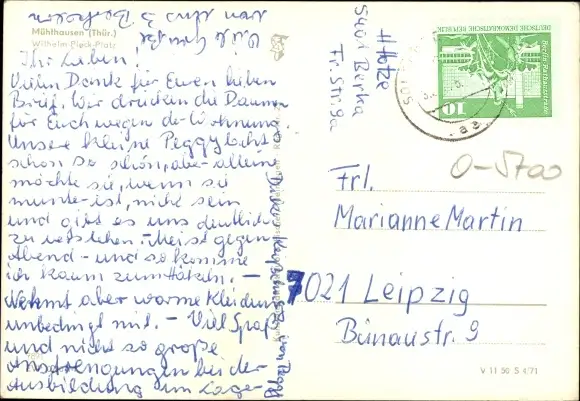 Mühlhausen (Thür.)
Wilhelm-Pieck-Platz
Ihr Lieben!
Vielen Dank für Euren lieben
Brief. Wir drücken die Daumen
für Euch wegen der Wohnung.
Unsere kleine Peggy lacht
schon so schön, aber allein
möchte sie, wenn sie
munter ist, nicht sein
und gibt es uns deutlich
zu verstehen. Meist gegen
Abend - und so komme
ich kaum zum Häkeln. -
Nehmt aber warme Kleidung
unbedingt mit. - Viel Spaß
und nicht so große
Anstrengungen bei der
Ausbildung im Lager
Viele Grüße
von uns 3 Berkaern
H. Hotze
5401 Berka
Fr. Str. 9a
DEUTSCHE DEMOKRATISCHE REPUBLIK
10
O-5700
Frl.
Marianne Martin
7021 Leipzig
Bünaustr. 9
V 11 50 S 4/71